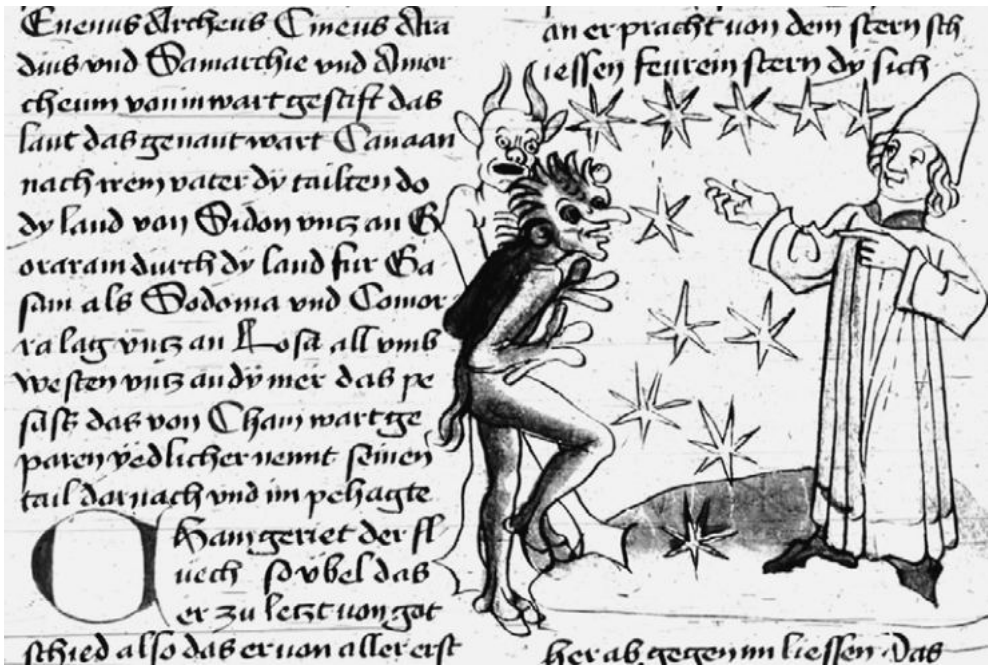 Euenus Archeus Cineus Ara
dius vnd Samarchie vnd Amor
cheum von in wart gestift das
lant das genant wart Canaan
nach irem vater dy tailten do
dy land von Sidon vntz an G
oraram durch dy land fur Ga
sam als Sodoma vnd Comor
ra lag vntz an Losa all vmb
westen vntz an dy mer das pe
sass das von Cham wart ge
paren yedlicher nennt seinen
tail darnach vnd im pehagte
Ham geriet der fl
uech so vbel das
er zu letzt von got
schied also das er von aller erst
an er pracht von dem stern sch
iessen feurein stern dy sich
her ab gegen im liessen Das